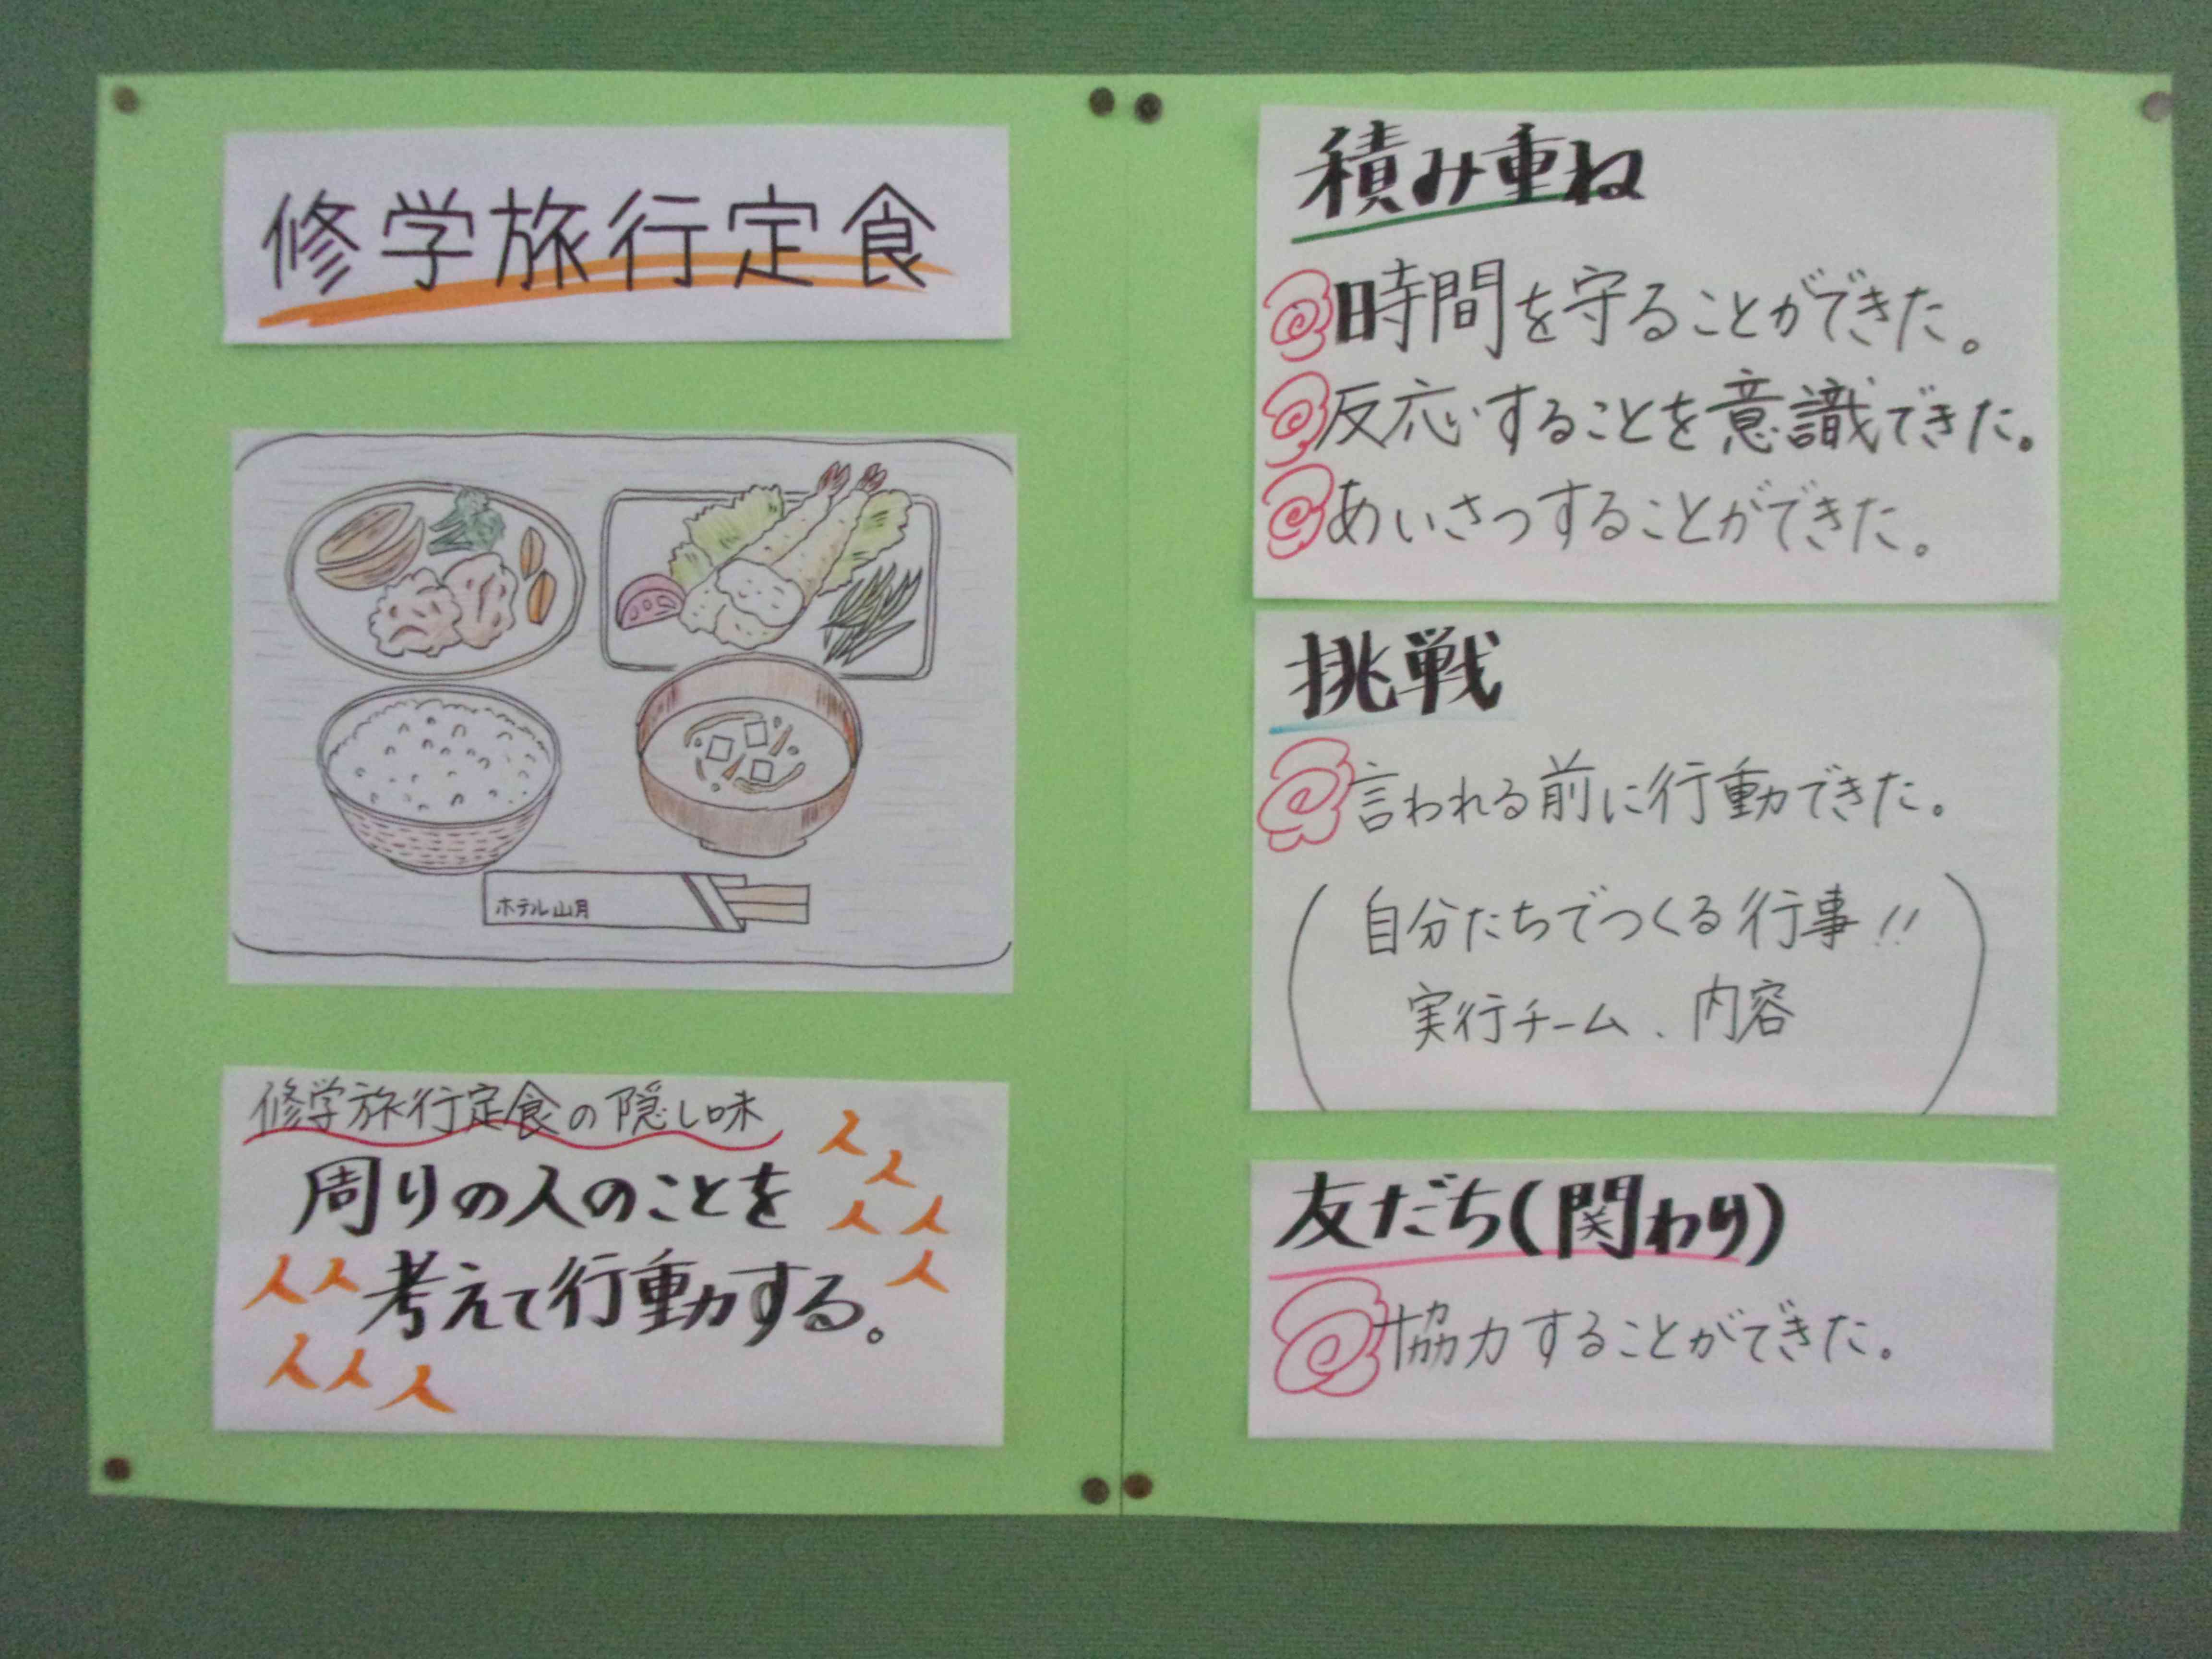 修学旅行定食
ホテル山月
修学旅行定食の隠し味
周りの人のことを
考えて行動する。
積み重ね
時間を守ることができた。
反応することを意識できた。
あいさつすることができた。
挑戦
言われる前に行動できた。
(自分たちでつくる行事!!
実行チーム、内容)
友だち(関わり)
協力することができた。